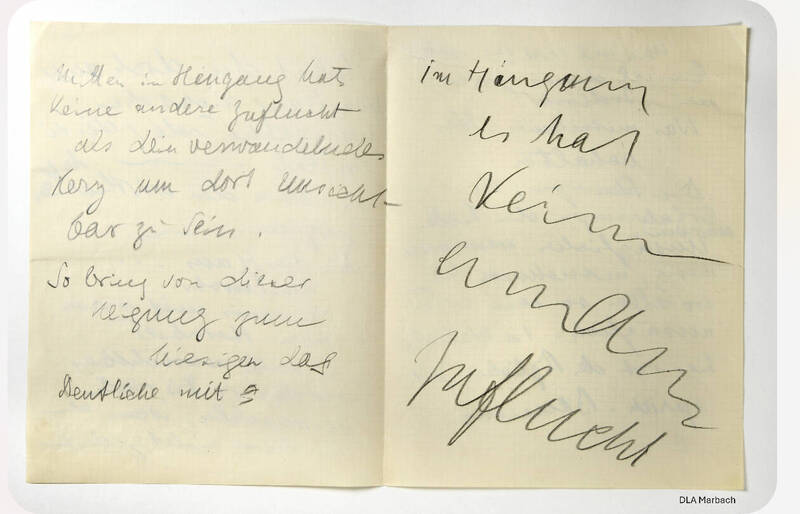 Mitten im Hingang hats
keine andere Zuflucht
als dein verwandelndes
Herz um dort unsicht-
bar zu sein.
So bring von dieser
Neigung zum
hiesigen das
Deutliche mit
im Hingang
es hat
keine
andre
Zuflucht
DLA Marbach